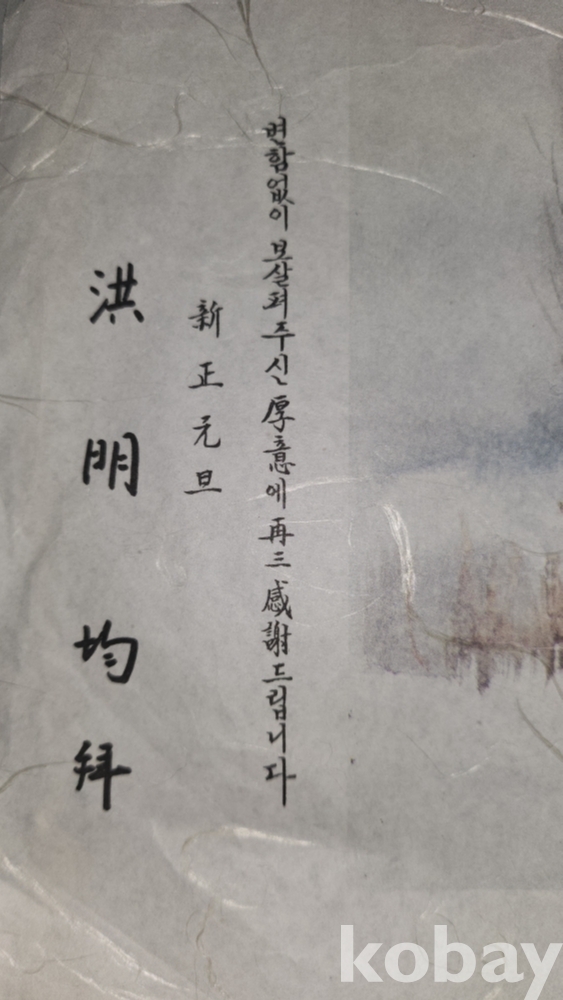 변함없이 보살펴주신 厚意에 再三 感謝드립니다
新正元旦
洪明均拜
kobay